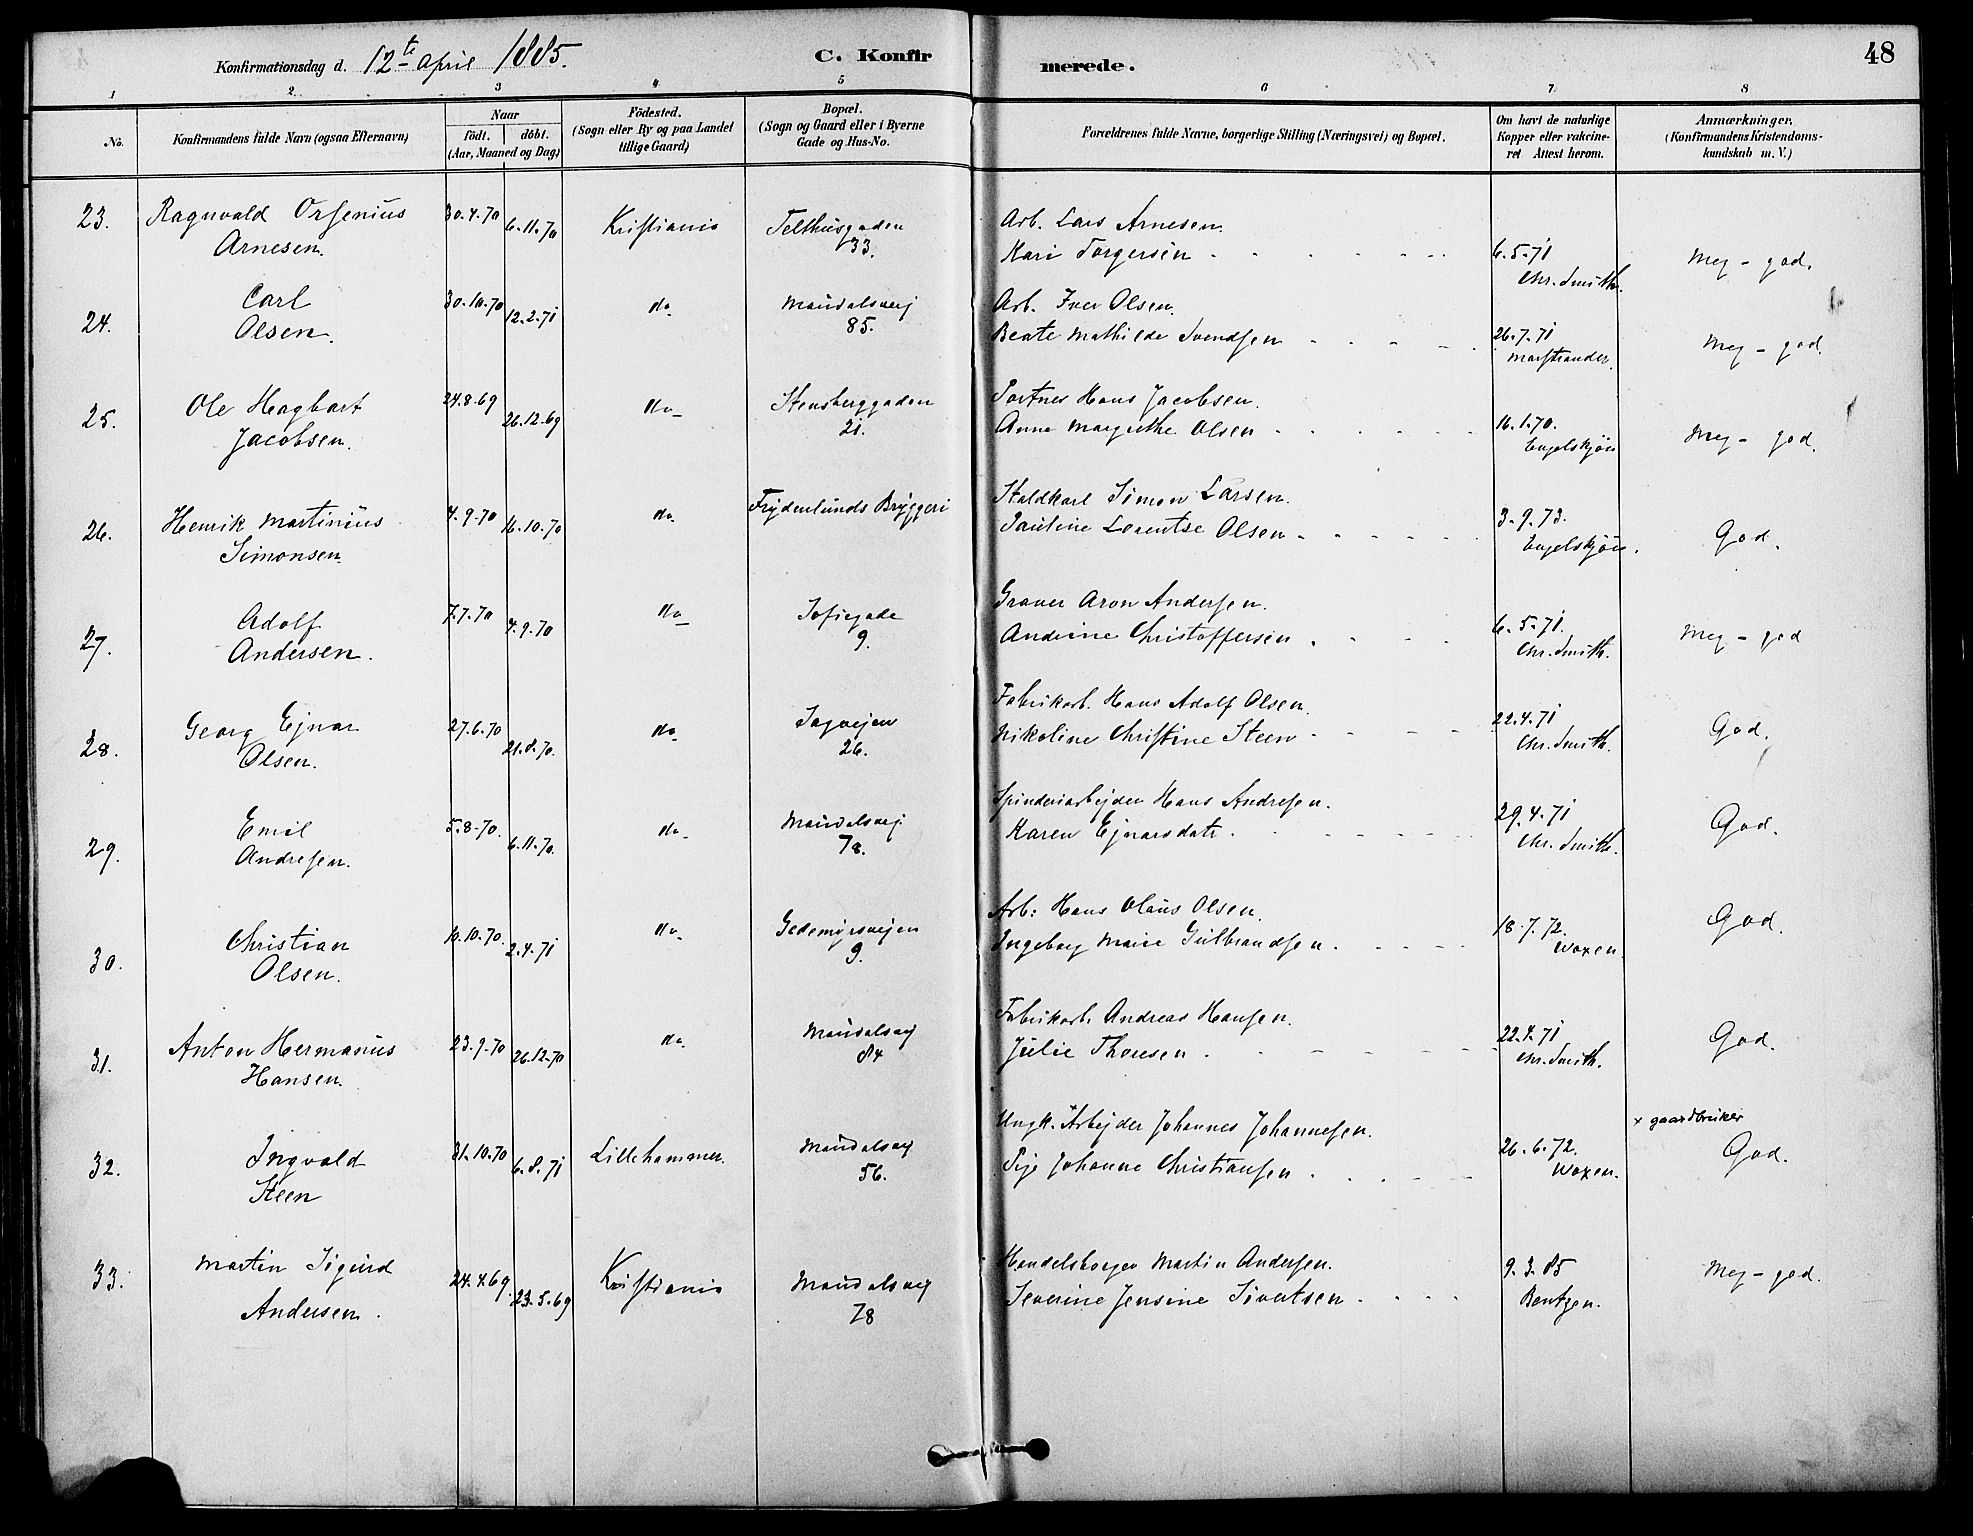 48
Konfirmationsdag d. 12te April 1885. C. Konfirmerede.
1 2 3 4 5 6 7 8
No. Konfirmandens fulde Navn (ogsaa Efternavn) Naar födt. döbt. (Aar, Maaned og Dag) Födested. (Sogn eller By og paa Landet tillige Gaard) Bopæl. (Sogn og Gaard eller i Byerne Gade og Hus-No. Forældrenes fulde Navne, borgerlige Stilling (Næringsvei) og Bopæl. Om havt de naturlige Kopper eller vakcineret Attest herom. Anmærkninger. (Konfirmandens Kristendomskundskab m. V.)
23. Ragnvald Orfenius 30.4.70 6.11.70 Kristiania Telthusgaden Arb. Lars Arnesen.
Arnesen. 33. Kari Torgersen 6.5.71 Chr. Smith. Meg-god.
24. Carl 30.10.70 12.2.71 do Maridalsvej Arb. Iver Olsen.
Olsen. 85. Beate Mathilde Svendsen 26.7.71 Marstrander. Meg-god.
25. Ole Hagbart 24.8.69 26.12.69 do Stensberggaden Portner Hans Jacobsen.
Jacobsen. 21. Anne Margrethe Olsen 16.1.70. Engelskjøn Meg-god.
26. Henrik Martinius 4.9.70 16.10.70 do Frydenlunds Bryggeri Staldkarl Simon Larsen.
Simonsen. Pauline Lorentse Olsen 3.9.73. Engelskjøn. God.
27. Adolf 7.7.70 4.9.70 do Sofiegade Graver Aron Andersen.
Andersen. 9. Andrine Christoffersen 6.5.71. Chr. Smith. Meg-god
28. Georg Ejnar 27.6.70 21.8.70. do Sagvejen Fabrikarb. Hans Adolf Olsen
Olsen. 26. Nikoline Christine Steen 22.4.71 Chr. Smith. God.
29. Emil 5.8.70. 6.11.70. do Maridalsvej Spinderiarbejder Hans Andresen.
Andresen. 78. Karen Ejnarsdatr. 29.4.71 Chr. Smith. God.
30. Christian 10.10.70. 2.4.71 do Gedemyrsvejen Arb: Hans Olaus Olsen.
Olsen. 9. Ingeborg Marie Gulbrandsen 18.7.72. Woxen. God.
31. Anton Hermanus 23.9.70 26.12.70 do. Maridalsvej Fabrikarb. Andreas Hansen.
Hansen. 84 Julie Thoresen 22.4.71 Chr. Smith. God.
32. Ingvald 31.10.70 6.8.71 Lillehammer. Maridalsvej Ungk. x Arbejder Johannes Johannesen. x gaardbruker
Steen 56. Pige Johanne Christiansen 26.6.72. Woxen. God.
33. Martin Sigurd 24.4.69. 23.5.69 Kristiania Maridalsvej Handelsborger Martin Andersen.
Andersen. 78 Severine Jensine Sivertsen 9.3.85 Bentzen. Meg-god.